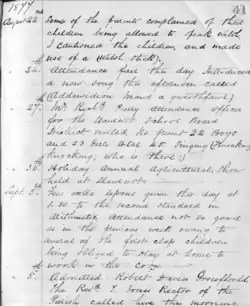 1877
41
August 22nd Some of the parents complained of their
children being allowed to speak welsh
I cautioned the children and made
use of a welsh stick.
" 24. Attendance fair this day Introduced
a new song this afternoon called
" 27. Mr Rees Davies attendance officer
for the School Board
District visited he found 22 Boys
and 23 Girls total 45 Singing (Knocking
Knocking; who is there?)
" 30. Holiday Annual Agricultural Show
held at
Sept. 3. Two were sponge given this day at
1.30 to the second standard in
Arithmetic, attendance not so good
as in the previous week owing to
several of the first class children
being obliged to stay at home to
work in the Corn
" 5. Admitted Robert Davies
The Revd. T. Jones Rector of the
Parish called here this morning